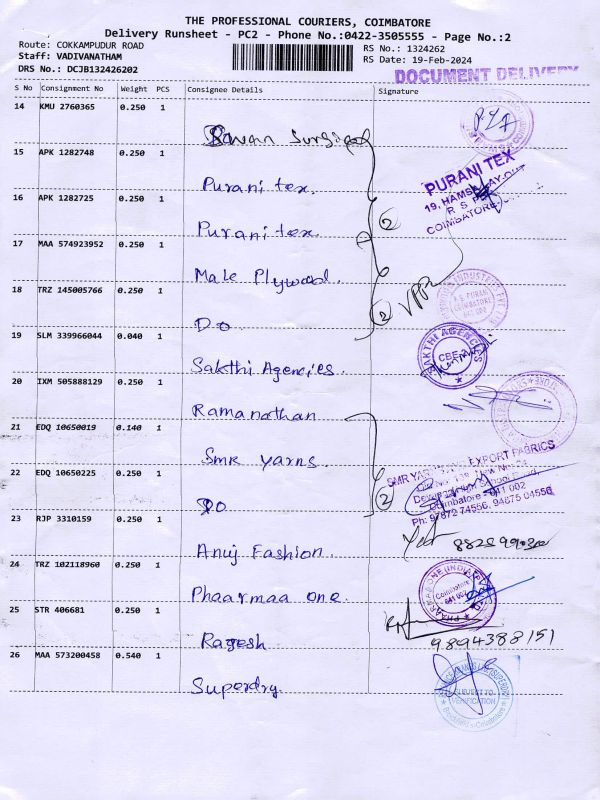 THE PROFESSIONAL COURIERS, COIMBATORE
Delivery Runsheet - PC2 - Phone No.:0422-3505555 - Page No.:2
Route: COKKAMPUDUR ROAD
RS No.: 1324262
Staff: VADIVANATHAM
RS Date: 19-Feb-2024
DRS No.: DCJB132426202
DOCUMENT DELIVERY
S No Consignment No Weight PCS Consignee Details Signature
14 KMU 2760365 0.250 1
15 APK 1282748 0.250 1
Purani tex.
PURANI TEX
16 APK 1282725 0.250 1
Purani tex.
2
COIMBATORE
17 MAA 574923952 0.250 1
Male Plywood.
18 TRZ 145005766 0.250 1
Do
2
19 SLM 339966044 0.040 1
Sakthi Agencies.
SAKTHI AGENCIES
CBE
20 IXM 505888129 0.250 1
Ramanathan
21 EDQ 10650019 0.140 1
SMR Yarns.
SMR YARN EXPORT FABRICS
22 EDQ 10650225 0.250 1
DO
2
Coimbatore - 641 002
Ph: 97872 74556, 94875 04556
23 RJP 3310159 0.250 1
Anuj Fashion.
24 TRZ 102118960 0.250 1
Phaarmaa one.
Coimbatore
25 STR 406681 0.250 1
Ragesh
9894388151
26 MAA 573200458 0.540 1
Superdry.
SUBJECT TO
VERIFICATION